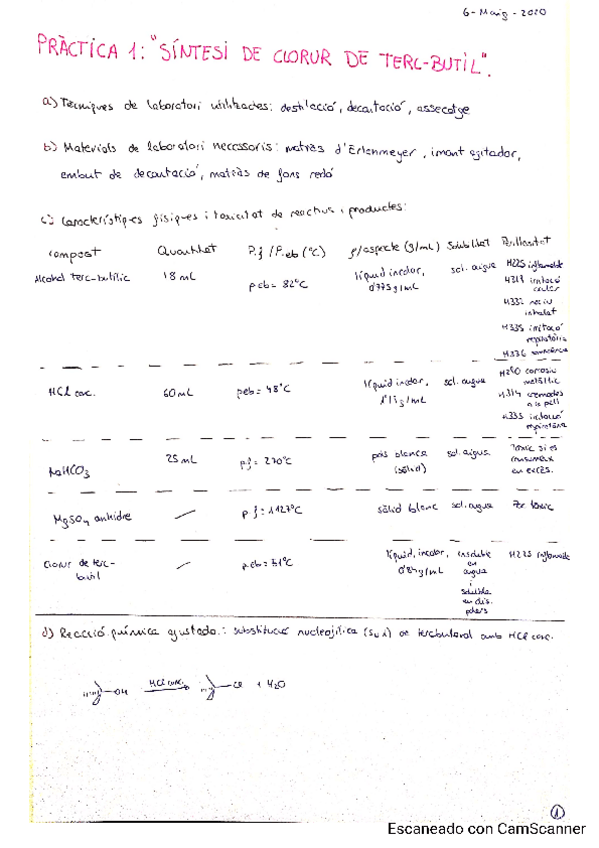 6-Maig-2020
PRÀCTICA 1: "SÍNTESI DE CLORUR DE TERC-BUTIL".
a) Tècniques de laboratori utilitzades: destil·lació, decantació, assecatge
b) Materials de laboratori necessaris: matràs d'Erlenmeyer, imant agitador,
embut de decantació, matràs de fons rodó
c) Característiques físiques i toxicitat de reactius i productes:
compost Quantitat P.f / P.eb (°C) ρ/aspecte (g/mL) Solubilitat Perillositat
Alcohol terc-butílic 18 mL p.eb = 82°C líquid incolor, 0'775 g/mL sol. aigua H225 inflamable
H319 irritació ocular
H332 nociu inhalat
H335 irritació respiratòria
H336 somnolència
HCl conc. 60 mL peb = 48°C líquid incolor, 1'15 g/mL sol. aigua H290 corrosiu metàl·lic
H314 cremades a la pell
H335 irritació respiratòria
NaHCO3 25 mL p.f = 270°C pols blanca (sòlid) sol. aigua Tòxic si es consumeix en excés.
MgSO4 anhidre — p.f = 1127°C sòlid blanc sol. aigua No tòxic
Clorur de terc-butil — p.eb = 51°C líquid, incolor, 0'84 g/mL insoluble en aigua i soluble en dis. H225 inflamable
d) Reacció química ajustada: substitució nucleofílica (SN1) de tercbutanol amb HCl conc.
OH HCl conc. Cl + H2O
1
Escaneado con CamScanner